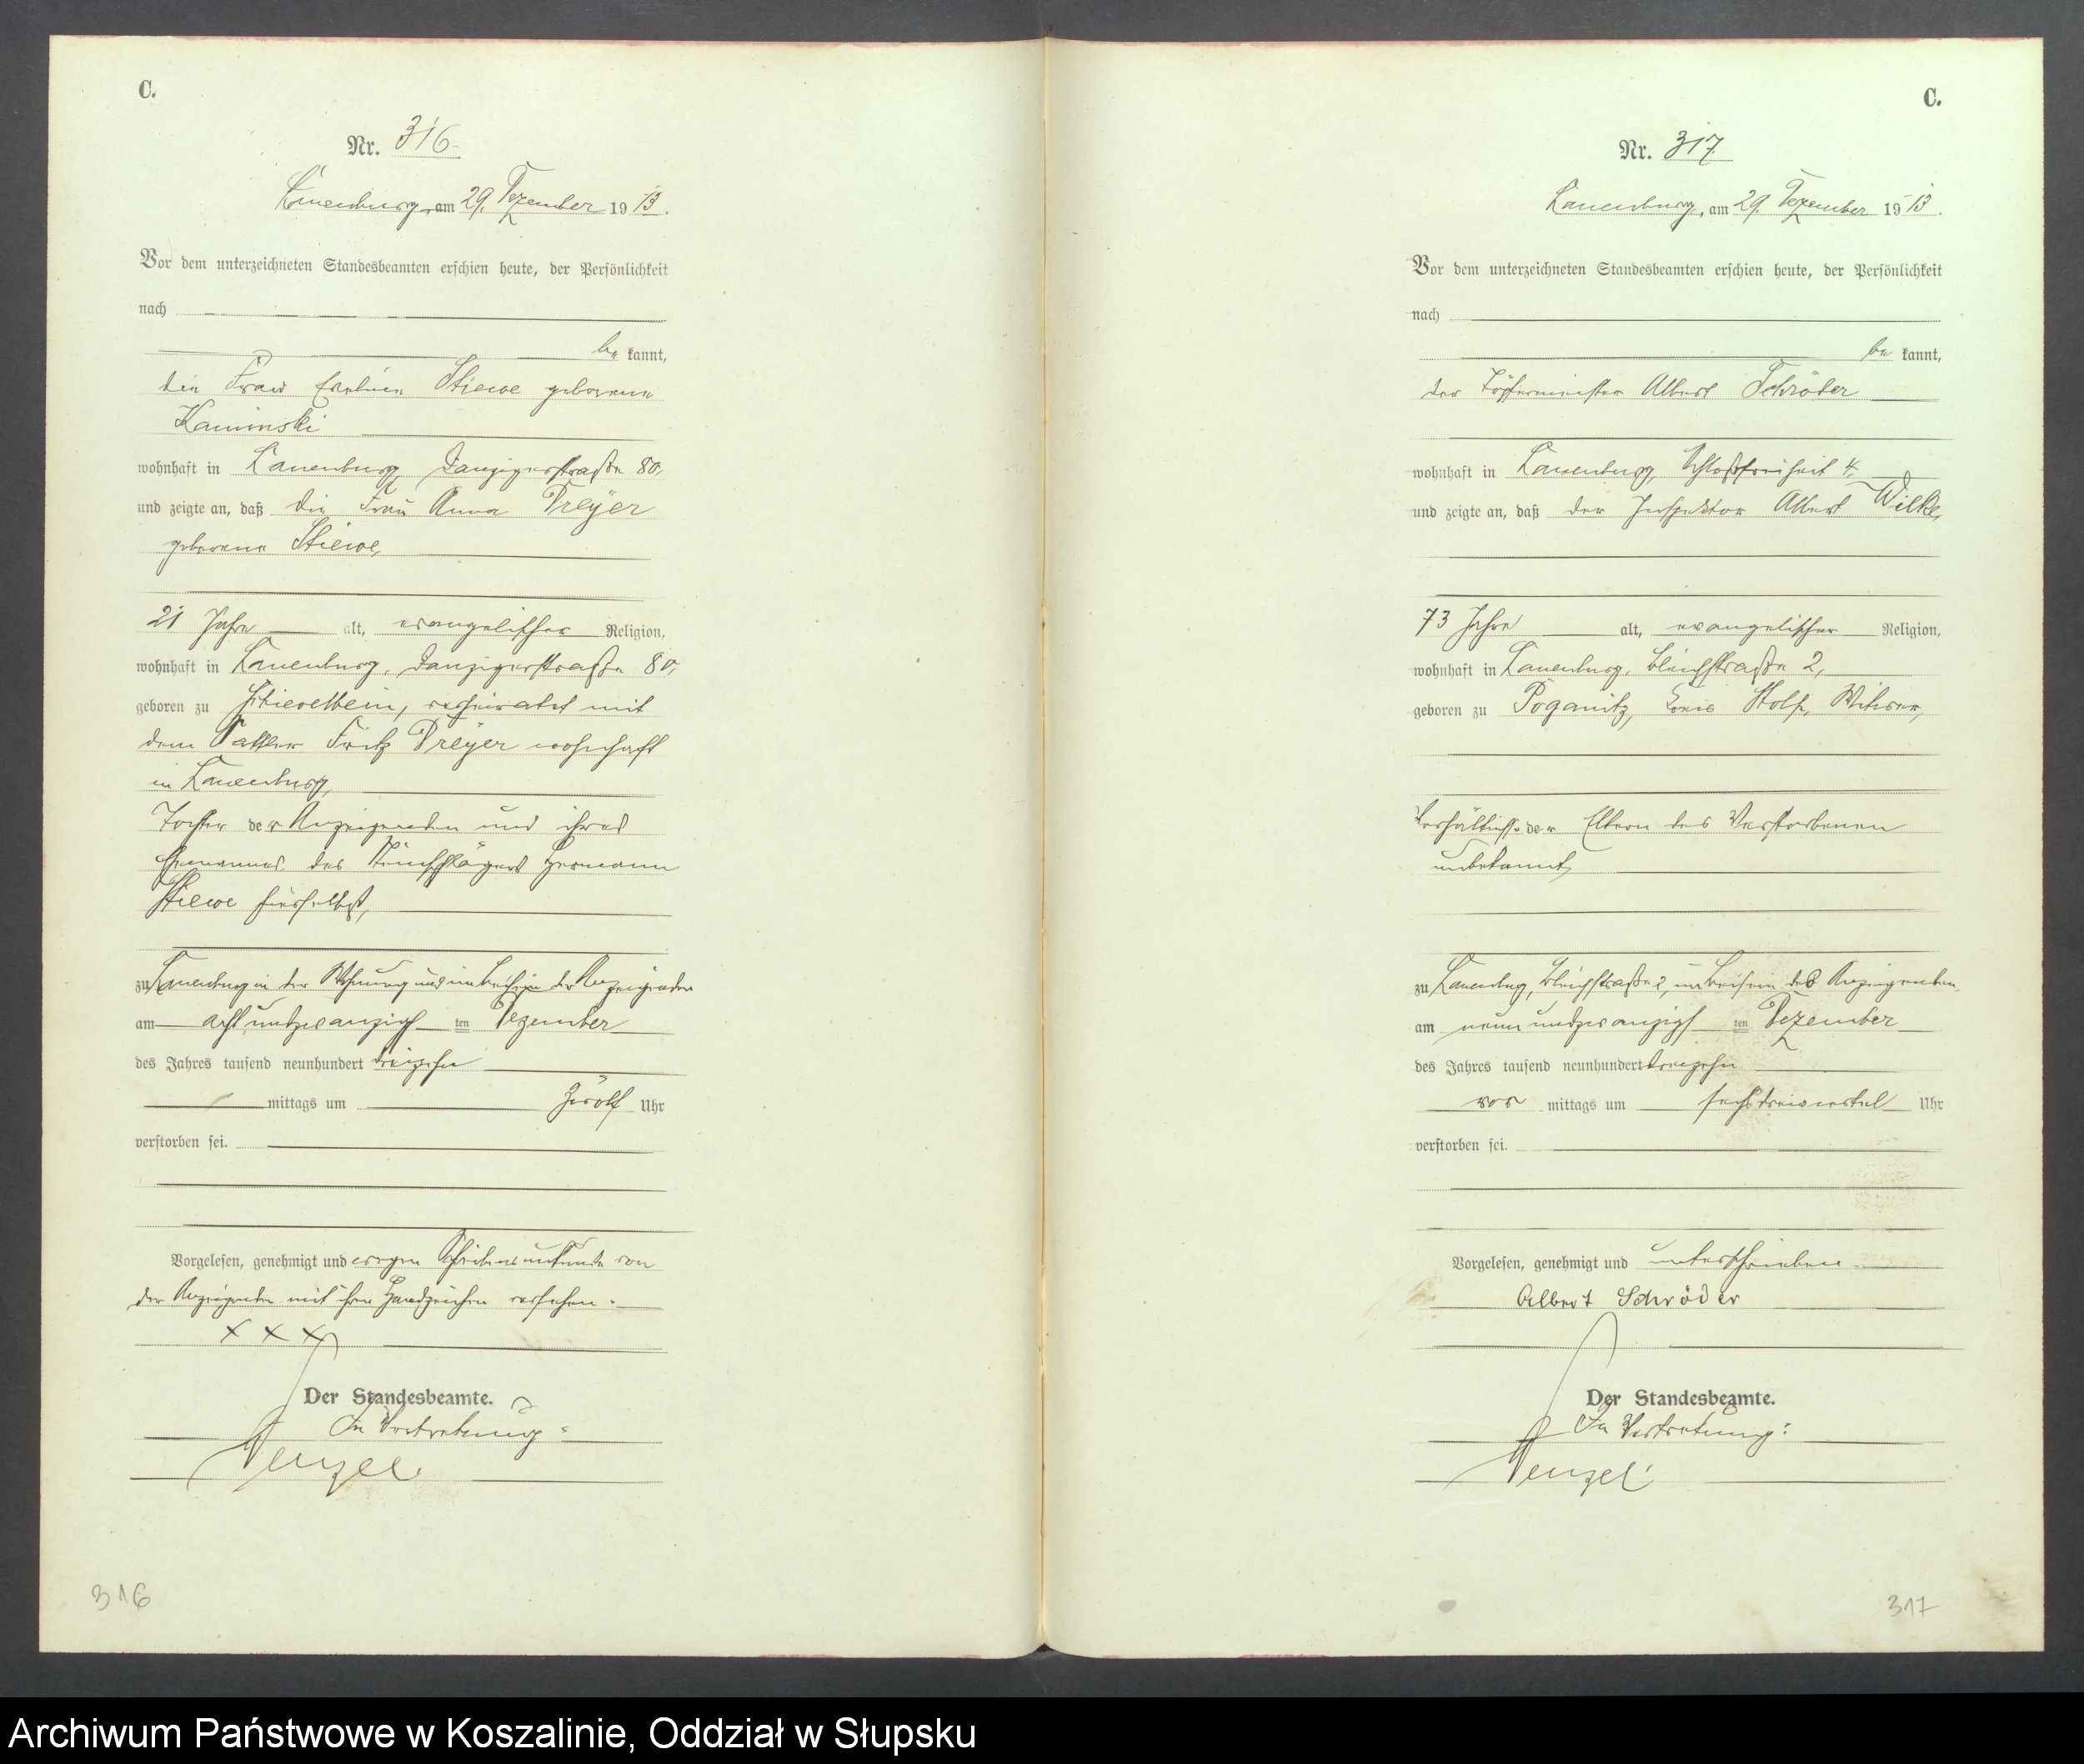 C.
Nr. 316.
Lauenburg, am 29. Dezember 1913.
Vor dem unterzeichneten Standesbeamten erschien heute, der Persönlichkeit
nach
be kannt,
die Frau Stiewe geborene
Kaminski
wohnhaft in Lauenburg, Danzigerstraße 80,
und zeigte an, daß die Frau Anna Dreyer
geborene Stiewe,
21 Jahre alt, evangelischer Religion,
wohnhaft in Lauenburg, Danzigerstraße 80,
geboren zu verheiratet mit
dem Sattler Fritz Dreyer wohnhaft
in Lauenburg,
Tochter der Anzeigenden und ihres
Ehemannes des Steinschlägers Hermann
Stiewe hierselbst,
zu Lauenburg in der Wohnung und im Beisein der Anzeigenden
am acht und zwanzigsten Dezember
des Jahres tausend neunhundert dreizehn
mittags um zwölf Uhr
verstorben sei.
Vorgelesen, genehmigt und wegen Schreibensunkunde von
der Anzeigenden mit ihren Handzeichen versehen.
x x x
Der Standesbeamte.
In Vertretung:
Wenzel.
316
C.
Nr. 317.
Lauenburg, am 29. Dezember 1913.
Vor dem unterzeichneten Standesbeamten erschien heute, der Persönlichkeit
nach
be kannt,
der Töpfermeister Albert Schröder
wohnhaft in Lauenburg, Schloßfreiheit 4,
und zeigte an, daß der Inspektor Albert Wilke,
73 Jahre alt, evangelischer Religion,
wohnhaft in Lauenburg, Bleichstraße 2,
geboren zu Poganitz, Kreis Stolp, Witwer,
Verhältnisse der Eltern des Verstorbenen
unbekannt,
zu Lauenburg, Bleichstraße 2, im Beisein des Anzeigenden,
am neun und zwanzigsten Dezember
des Jahres tausend neunhundert dreizehn
vor mittags um sechs dreiviertel Uhr
verstorben sei.
Vorgelesen, genehmigt und unterschrieben.
Albert Schröder
Der Standesbeamte.
In Vertretung:
Wenzel
317
Archiwum Państwowe w Koszalinie, Oddział w Słupsku